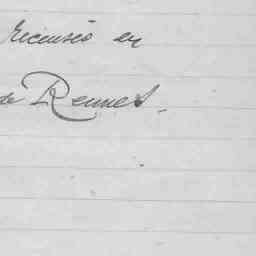 recensés en
de Rennes.